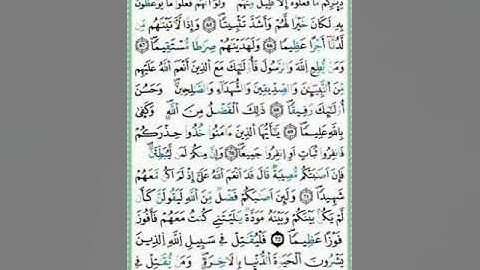 دِيٰرِكُم مَّا فَعَلُوهُ إِلَّا قَلِيلٌ مِّنْهُمْ وَلَوَ اَنَّهُمْ فَعَلُواْ مَا يُوعَظُونَ
بِهِۦ لَكَانَ خَيْرًا لَّهُمْ وَأَشَدَّ تَثْبِيتًا وَإِذًا لَّأٓتَيْنَٰهُم مِّن
لَّدُنَّآ أَجْرًا عَظِيمًا وَلَهَدَيْنَٰهُمْ صِرَٰطًا مُّسْتَقِيمًا
وَمَنْ يُّطِعِ اِللَّهَ وَالرَّسُولَ فَأُوْلَٰٓئِكَ مَعَ اَلذِينَ أَنْعَمَ اَللَّهُ عَلَيْهِم
مِّنَ اَلنَّبِيٓـِٕينَ وَالصِّدِّيقِينَ وَالشُّهَدَآءِ وَالصَّٰلِحِينَ وَحَسُنَ
أُوْلَٰٓئِكَ رَفِيقًا ذَٰلِكَ اَلْفَضْلُ مِنَ اَللَّهِ وَكَفَىٰ
بِاللَّهِ عَلِيمًا يَٰٓأَيُّهَا اَلذِينَ ءَامَنُواْ خُذُواْ حِذْرَكُمْ
فَانفِرُواْ ثُبَاتٍ أَوِ اِنفِرُواْ جَمِيعًا وَإِنَّ مِنكُمْ لَمَن لَّيُبَطِّئَنَّ
فَإِنَ اَصَٰبَتْكُم مُّصِيبَةٌ قَالَ قَدَ اَنْعَمَ اَللَّهُ عَلَيَّ إِذْ لَمَ اَكُن مَّعَهُمْ
شَهِيدًا وَلَئِنَ اَصَٰبَكُمْ فَضْلٌ مِّنَ اَللَّهِ لَيَقُولَنَّ كَأَن
لَّمْ يَكُنۢ بَيْنَكُمْ وَبَيْنَهُۥ مَوَدَّةٌ يَٰلَيْتَنِي كُنتُ مَعَهُمْ فَأَفُوزَ
فَوْزًا عَظِيمًا ٧٢ فَلْيُقَٰتِلْ فِي سَبِيلِ اِللَّهِ اِلذِينَ
يَشْرُونَ اَلْحَيَوٰةَ اَلدُّنْيَا بِالَاخِرَةِ وَمَنْ يُّقَٰتِلْ فِي